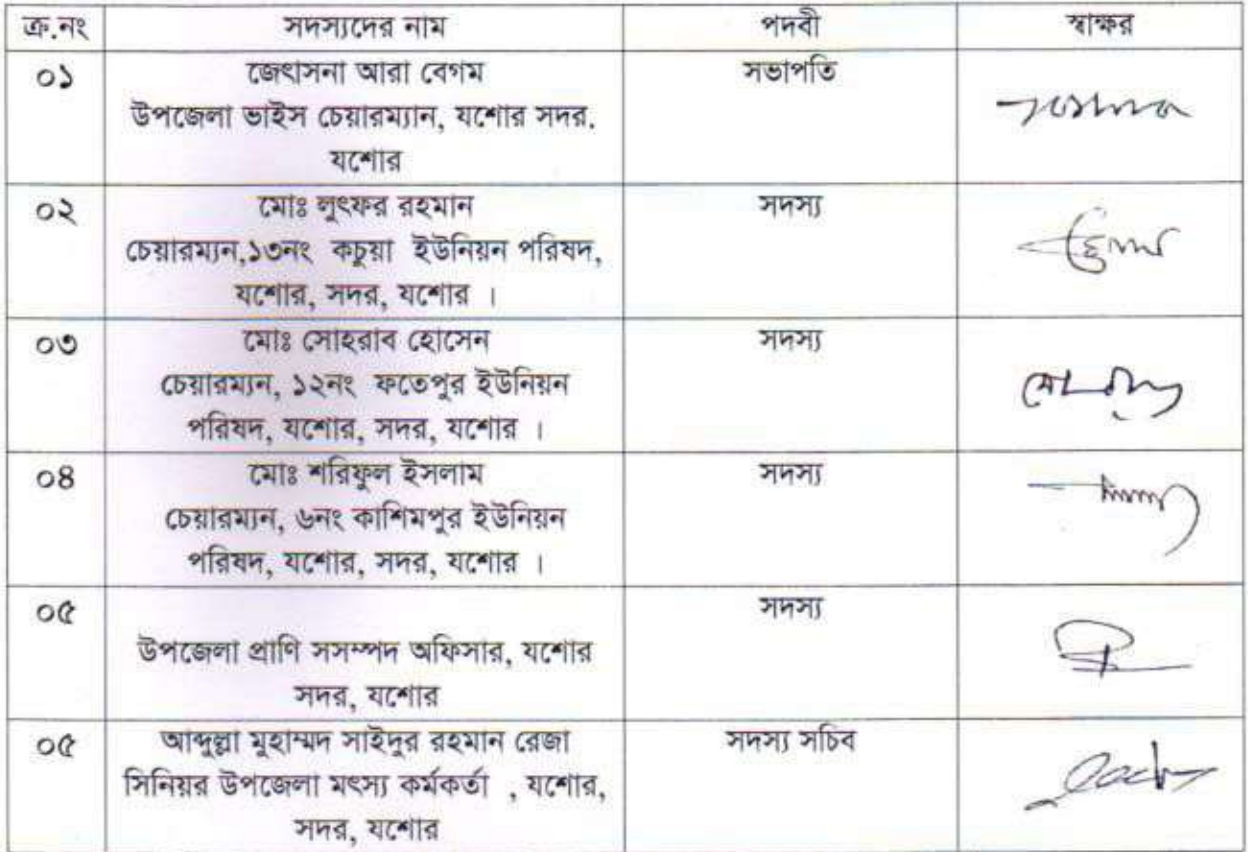 ক্র.নং সদস্যদের নাম পদবী স্বাক্ষর
০১ জেৎাসনা আরা বেগম সভাপতি
উপজেলা ভাইস চেয়ারম্যান, যশোর সদর.
যশোর
০২ মোঃ লুৎফর রহমান সদস্য
চেয়ারম্যন,১৩নং কচুয়া ইউনিয়ন পরিষদ,
যশোর, সদর, যশোর ।
০৩ মোঃ সোহরাব হোসেন সদস্য
চেয়ারম্যন, ১২নং ফতেপুর ইউনিয়ন
পরিষদ, যশোর, সদর, যশোর ।
০৪ মোঃ শরিফুল ইসলাম সদস্য
চেয়ারম্যন, ৬নং কাশিমপুর ইউনিয়ন
পরিষদ, যশোর, সদর, যশোর ।
০৫ সদস্য
উপজেলা প্রাণি সসম্পদ অফিসার, যশোর
সদর, যশোর
০৫ আব্দুল্লা মুহাম্মদ সাইদুর রহমান রেজা সদস্য সচিব
সিনিয়র উপজেলা মৎস্য কর্মকর্তা , যশোর,
সদর, যশোর